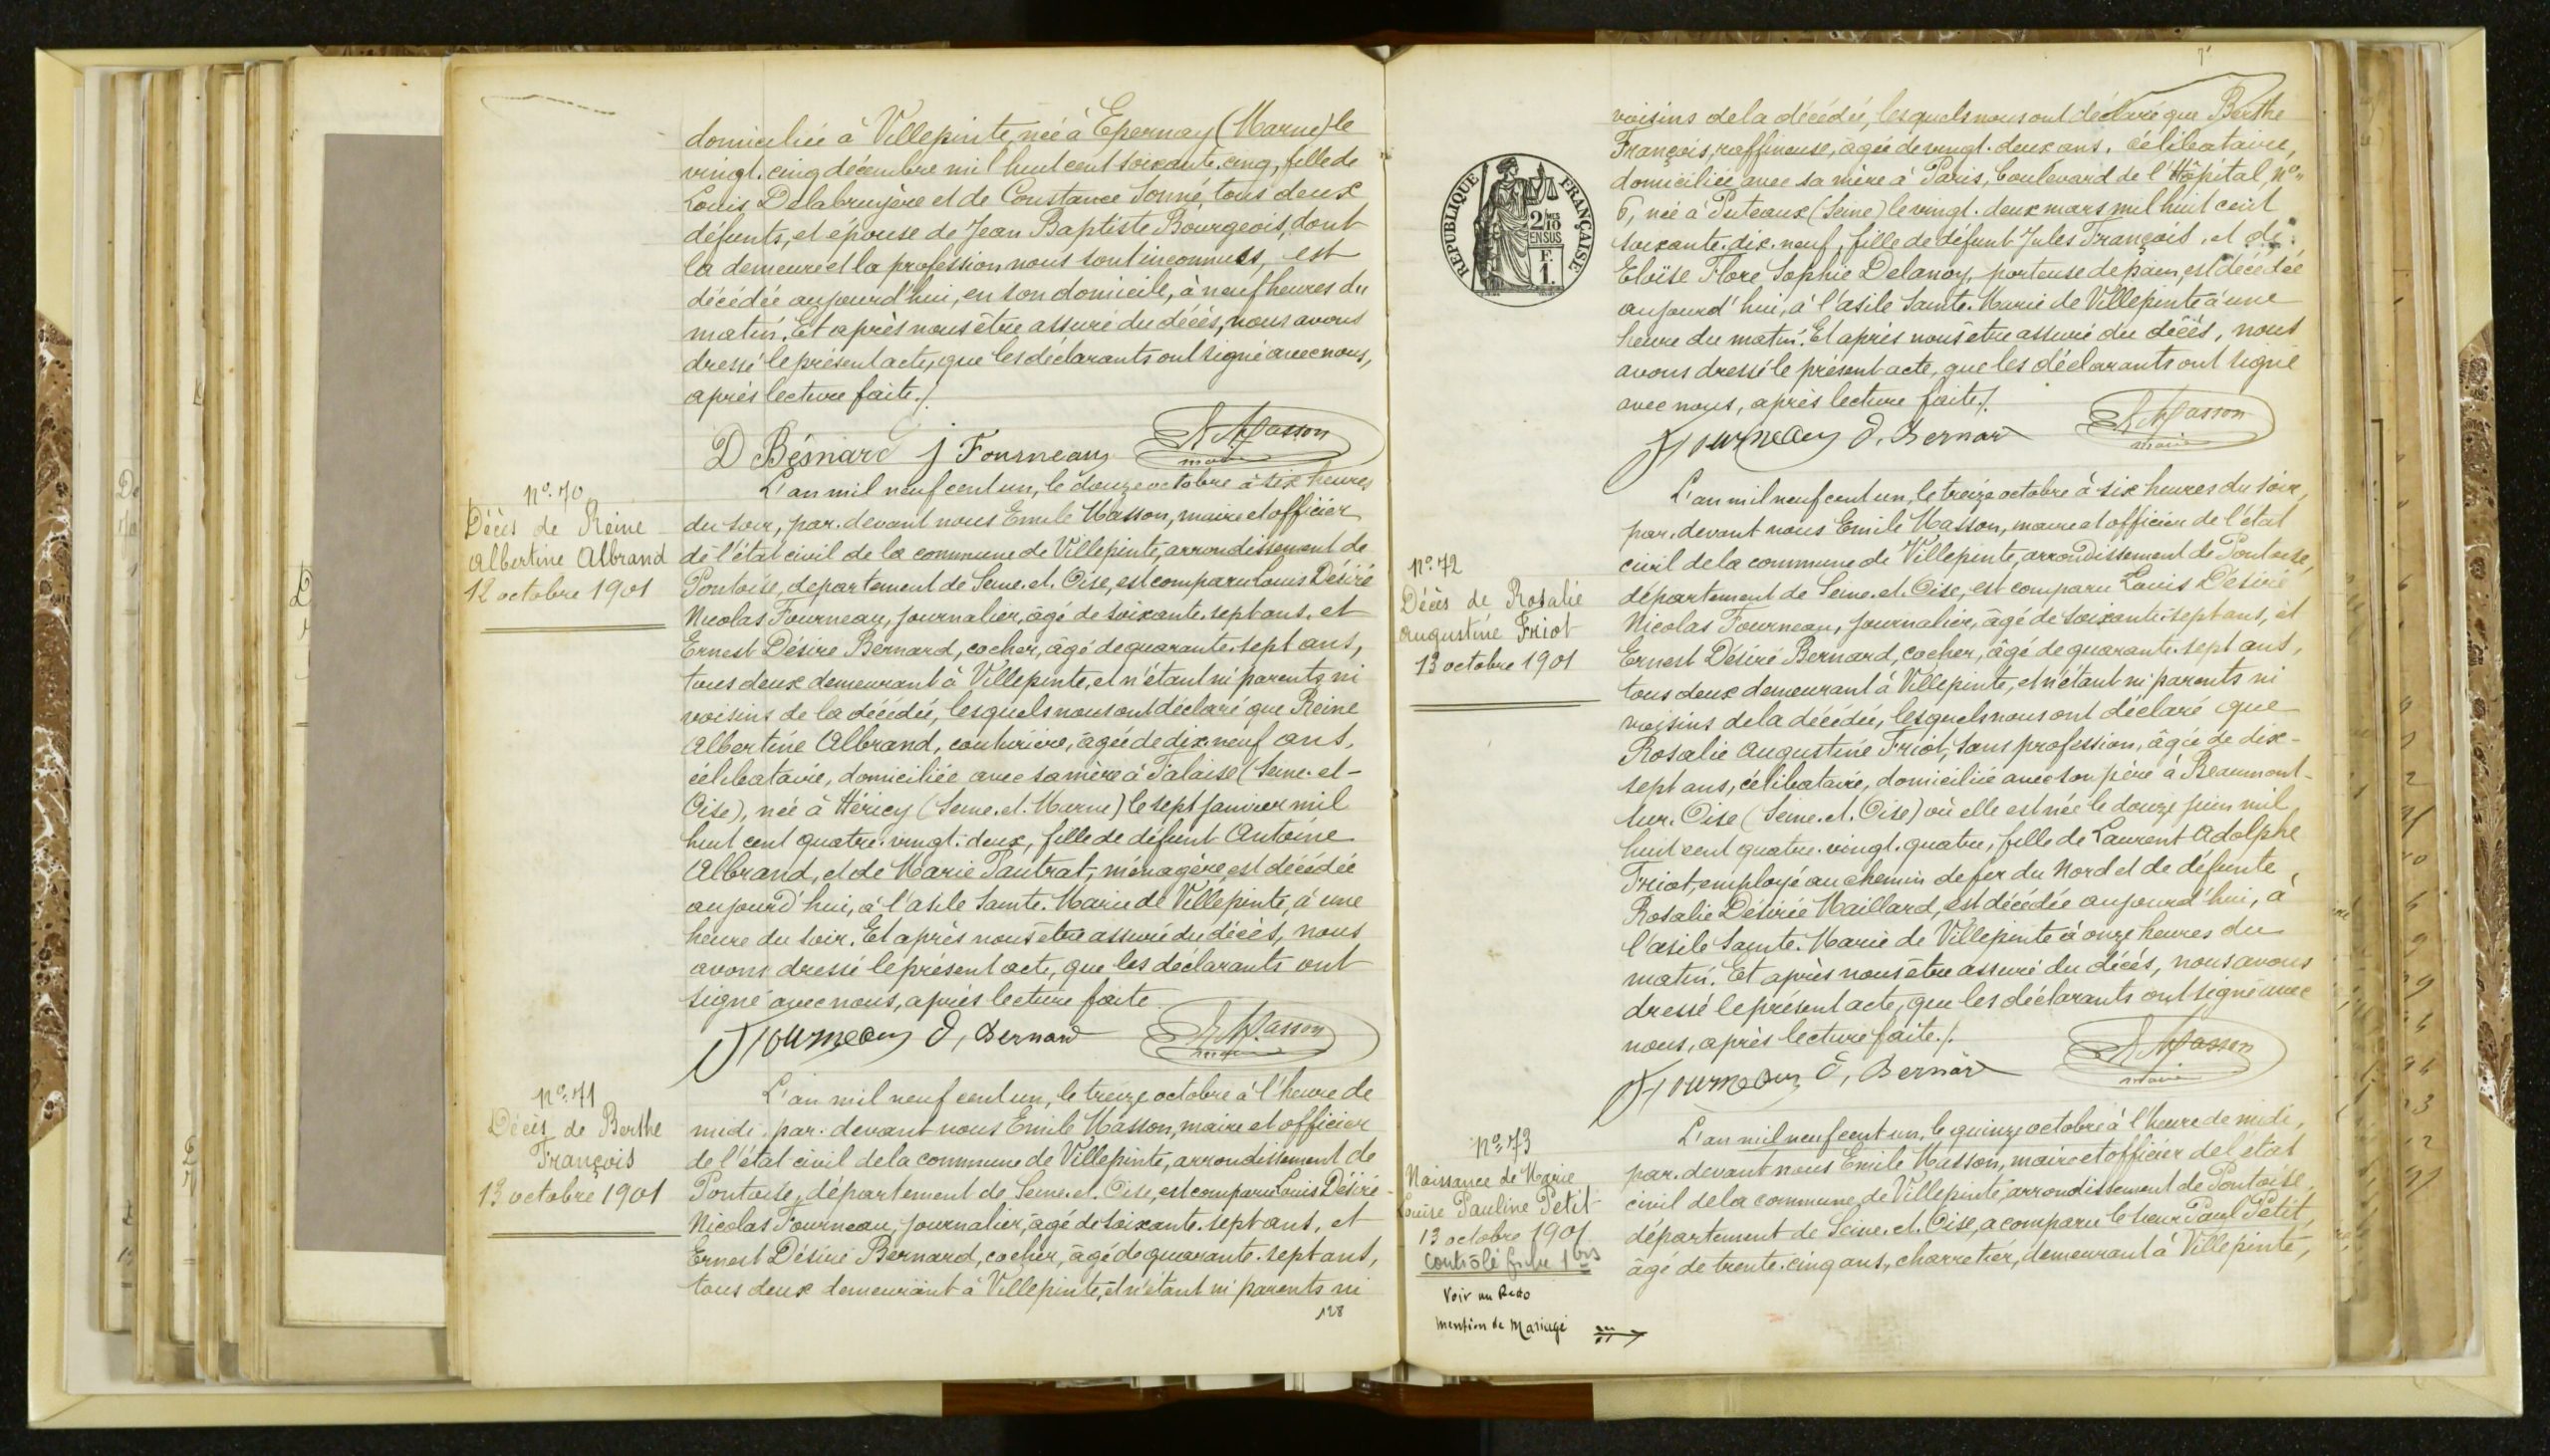 domiciliée à Villepinte, née à Epernay (Marne) le
vingt-cinq décembre mil huit cent soixante-cinq, fille de
Louis Delabruyère et de Constance Sonné, tous deux
défunts, et épouse de Jean Baptiste Bourgeois, dont
la demeure et la profession nous sont inconnues, est
décédée aujourd'hui, en son domicile, à neuf heures du
matin. Et après nous être assuré du décès, nous avons
dressé le présent acte, que les déclarants ont signé avec nous,
après lecture faite./.
D Bésnard J Fourneau E Masson
maire
No. 70
Décès de Reine
Albertine Albrand
12 octobre 1901
L'an mil neuf cent un, le douze octobre à six heures
du soir, par-devant nous Emile Masson, maire et officier
de l'état civil de la commune de Villepinte, arrondissement de
Pontoise, département de Seine-et-Oise, est comparu Louis Désiré
Nicolas Fourneau, journalier, âgé de soixante-sept ans, et
Ernest Désiré Bernard, cocher, âgé de quarante-sept ans,
tous deux demeurant à Villepinte, et n'étant ni parents ni
voisins de la décédée, lesquels nous ont déclaré que Reine
Albertine Albrand, couturière, âgée de dix-neuf ans,
célibataire, domiciliée avec sa mère à Palaise (Seine-et-
Oise), née à Héricy (Seine-et-Marne) le sept janvier mil
huit cent quatre-vingt-deux, fille de défunt Antoine
Albrand, et de Marie Pautrat, ménagère, est décédée
aujourd'hui, à l'asile Sainte-Marie de Villepinte, à une
heure du soir. Et après nous être assuré du décès, nous
avons dressé le présent acte, que les déclarants ont
signé avec nous, après lecture faite
Fourneau E, Bernard E Masson
maire
No. 71
Décès de Berthe
François
13 octobre 1901
L'an mil neuf cent un, le treize octobre à l'heure de
midi, par-devant nous Emile Masson, maire et officier
de l'état civil de la commune de Villepinte, arrondissement de
Pontoise, département de Seine-et-Oise, est comparu Louis Désiré
Nicolas Fourneau, journalier, âgé de soixante-sept ans, et
Ernest Désiré Bernard, cocher, âgé de quarante-sept ans,
tous deux demeurant à Villepinte, et n'étant ni parents ni
128
RÉPUBLIQUE FRANÇAISE
2/10MES
EN SUS
F.
1.
voisins de la décédée, lesquels nous ont déclaré que Berthe
François, raffineuse, âgée de vingt-deux ans, célibataire,
domiciliée avec sa mère à Paris, boulevard de l'Hôpital, no
6, née à Puteaux (Seine) le vingt-deux mars mil huit cent
soixante-dix-neuf, fille de défunt Jules François, et de
Eloïse Flore Sophie Delanoy, porteuse de pain, est décédée
aujourd'hui, à l'asile Sainte-Marie de Villepinte à une
heure du matin. Et après nous être assuré du décès, nous
avons dressé le présent acte, que les déclarants ont signé
avec nous, après lecture faite./.
Fourneau E, Bernard E Masson
maire
No. 72
Décès de Rosalie
Augustine Friot
13 octobre 1901
L'an mil neuf cent un, le treize octobre à six heures du soir,
par-devant nous Emile Masson, maire et officier de l'état
civil de la commune de Villepinte, arrondissement de Pontoise,
département de Seine-et-Oise, est comparu Louis Désiré
Nicolas Fourneau, journalier, âgé de soixante-sept ans, et
Ernest Désiré Bernard, cocher, âgé de quarante-sept ans,
tous deux demeurant à Villepinte, et n'étant ni parents ni
voisins de la décédée, lesquels nous ont déclaré que
Rosalie Augustine Friot, sans profession, âgée de dix-
sept ans, célibataire, domiciliée avec son père à Beaumont-
sur-Oise (Seine-et-Oise) où elle est née le douze juin mil
huit cent quatre-vingt-quatre, fille de Laurent Adolphe
Friot, employé au chemin de fer du Nord et de défunte
Rosalie Désirée Maillard, est décédée aujourd'hui, à
l'asile Sainte-Marie de Villepinte à onze heures du
matin. Et après nous être assuré du décès, nous avons
dressé le présent acte, que les déclarants ont signé avec
nous, après lecture faite./.
Fourneau E, Bernard E Masson
maire
No. 73
Naissance de Marie
Louise Pauline Petit
13 octobre 1901
Contrôlé fiche 1 bis
Voir au Recto
mention de Mariage
L'an mil neuf cent un, le quinze octobre à l'heure de midi,
par-devant nous Emile Masson, maire et officier de l'état
civil de la commune de Villepinte, arrondissement de Pontoise,
département de Seine-et-Oise, a comparu le sieur Paul Petit,
âgé de trente-cinq ans, charretier, demeurant à Villepinte,